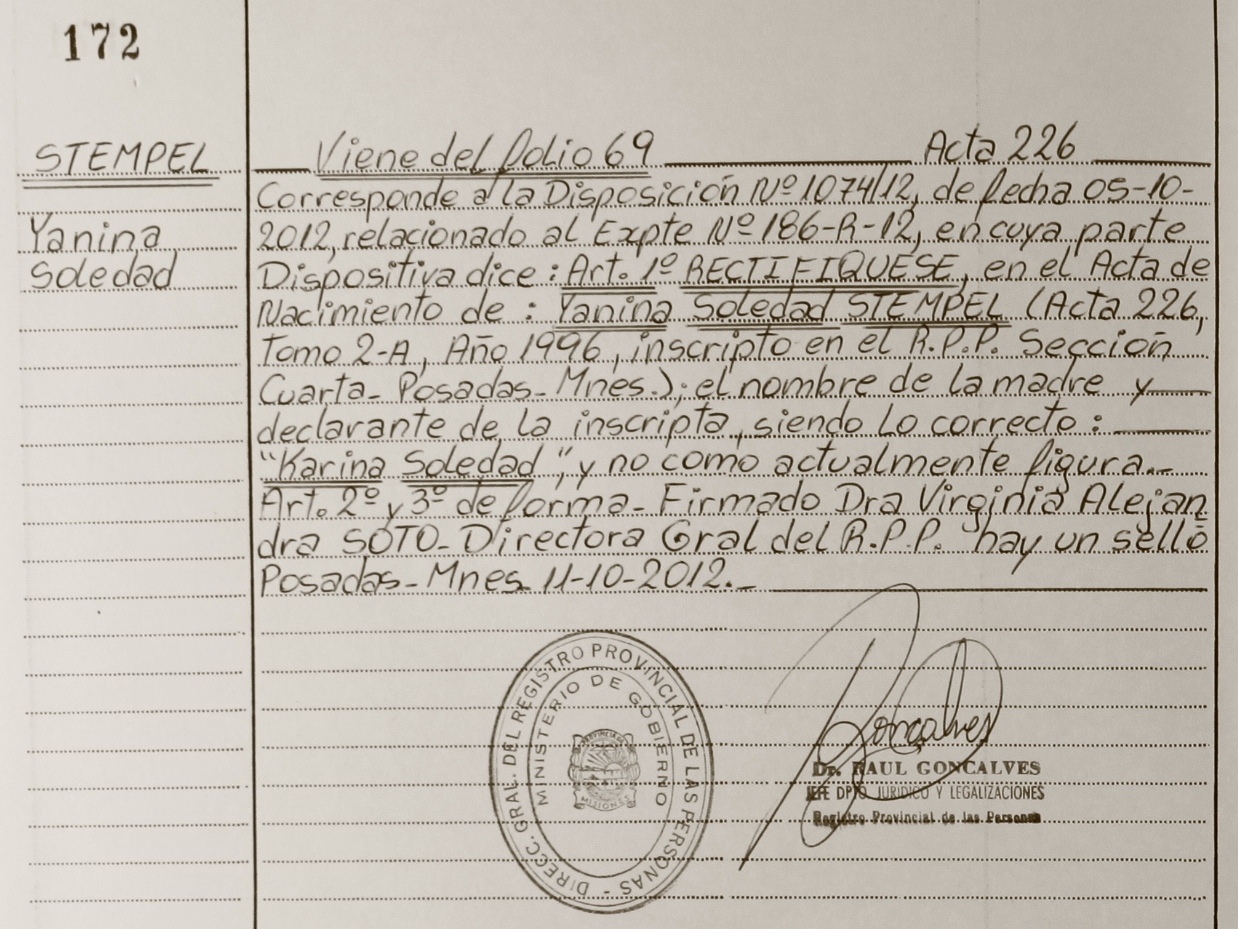 172
STEMPEL
Yanina
Soledad
Viene del folio 69 Acta 226
Corresponde a la Disposición Nº 1074/12, de fecha 05-10-
2012, relacionado al Expte Nº 186-R-12, en cuya parte
Dispositiva dice : Art. 1º RECTIFIQUESE, en el Acta de
Nacimiento de : Yanina Soledad STEMPEL (Acta 226,
Tomo 2-A, Año 1996, inscripto en el R.P.P. Sección
Cuarta- Posadas- Mnes.); el nombre de la madre y
declarante de la inscripta, siendo lo correcto :
"Karina Soledad", y no como actualmente figura.-
Art. 2º y 3º de forma- Firmado Dra Virginia Alejan
dra SOTO- Directora Gral del R.P.P. hay un sello
Posadas- Mnes 11-10-2012.-
DIRECC. GRAL. DEL REGISTRO PROVINCIAL DE LAS PERSONAS -
MINISTERIO DE GOBIERNO
PROVINCIA DE
MISIONES
Goncalves
Dr. RAUL GONCALVES
JEFE DPTO JURIDICO Y LEGALIZACIONES
Registro Provincial de las Personas